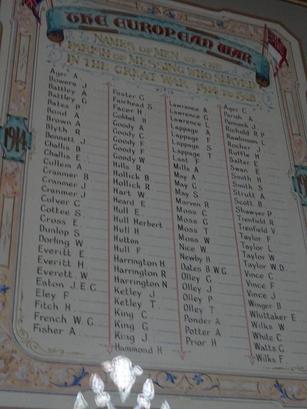 THE EUROPEAN WAR
NAMES OF MEN OF THE
PARISH OF MESSING WHO SERVED
IN THE GREAT WAR
1914
Ager A
Bowers J
Battley J
Battley G
Bates P
Bond A
Brown A
Blyth R
Challis B
Challis E
Cullen A
Cranmer B
Cranmer J
Cranmer J
Culver G
Cottee S
Cross E
Dunlop S
Dorling W
Everitt E
Everitt H
Everett W
Eaton J.E.C
Eley F
Fitch H
French W G
Fisher A
Foster G
Fairhead S
Facer H
Goody A
Goody C
Goody F
Goody F
Goody W
Hills R
Hollick B
Hollick R
Hart W
Heard E
Hull E
Hull Herbert
Hull H
Hutton
Hull F
Harrington H
Harrington R
Harrington N
Ketley J
Ketley T
King C
King G
King J
Hammond H
Lawrence A
Lawrence G
Lawrence L
Lappage A
Lappage F
Lappage S
Lappage T
Last F
Mills A
May A
May C
May S
Marven R
Moss C
Moss G
Moss T
Moss W
Nice W
Newby H
Oates B.W.G
Olley G
Olley J
Olley P
Olley T
Ponder A
Potter A
Prior H
Ager C
Parish A
Richold R P
Rawlinson L
Rocher J
Ruffle H
Salter E
Swan E
Smith H
Smith S
Strutt A
Scott B
Shawyer P
Trenfield R
Trenfield V
Taylor F
Taylor L
Taylor W
Taylor W.D
Vince C
Vince F
Vince J
Winger B
Whittaker E
Wilks W
White C
Watts G
Wilks F